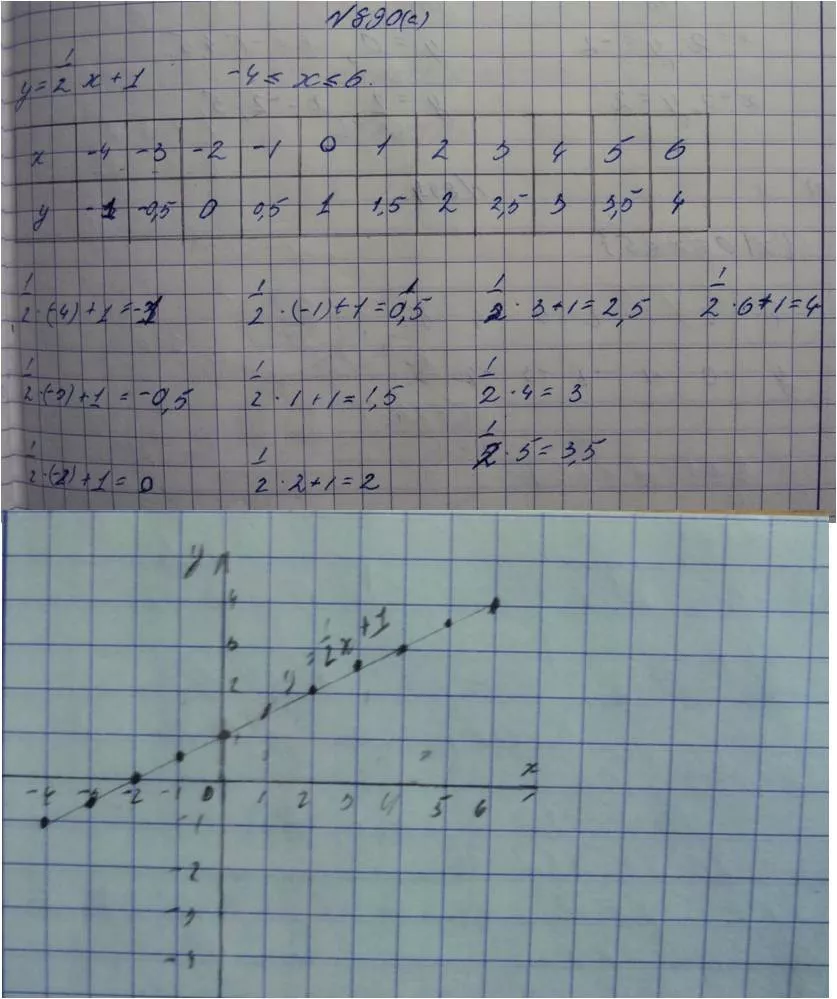 №890(а)
y = 1/2 x + 1 -4 ≤ x ≤ 6.
x -4 -3 -2 -1 0 1 2 3 4 5 6
y -1 -0,5 0 0,5 1 1,5 2 2,5 3 3,5 4
1/2 · (-4) + 1 = -1 1/2 · (-1) + 1 = 0,5 1/2 · 3 + 1 = 2,5 1/2 · 6 + 1 = 4
1/2 · (-3) + 1 = -0,5 1/2 · 1 + 1 = 1,5 1/2 · 4 = 3
1/2 · 5 = 3,5
1/2 · (-2) + 1 = 0 1/2 · 2 + 1 = 2
y
4
3
y = 1/2 x + 1
2
1
x
-4 -3 -2 -1 0 1 2 3 4 5 6
-1
-2
-3